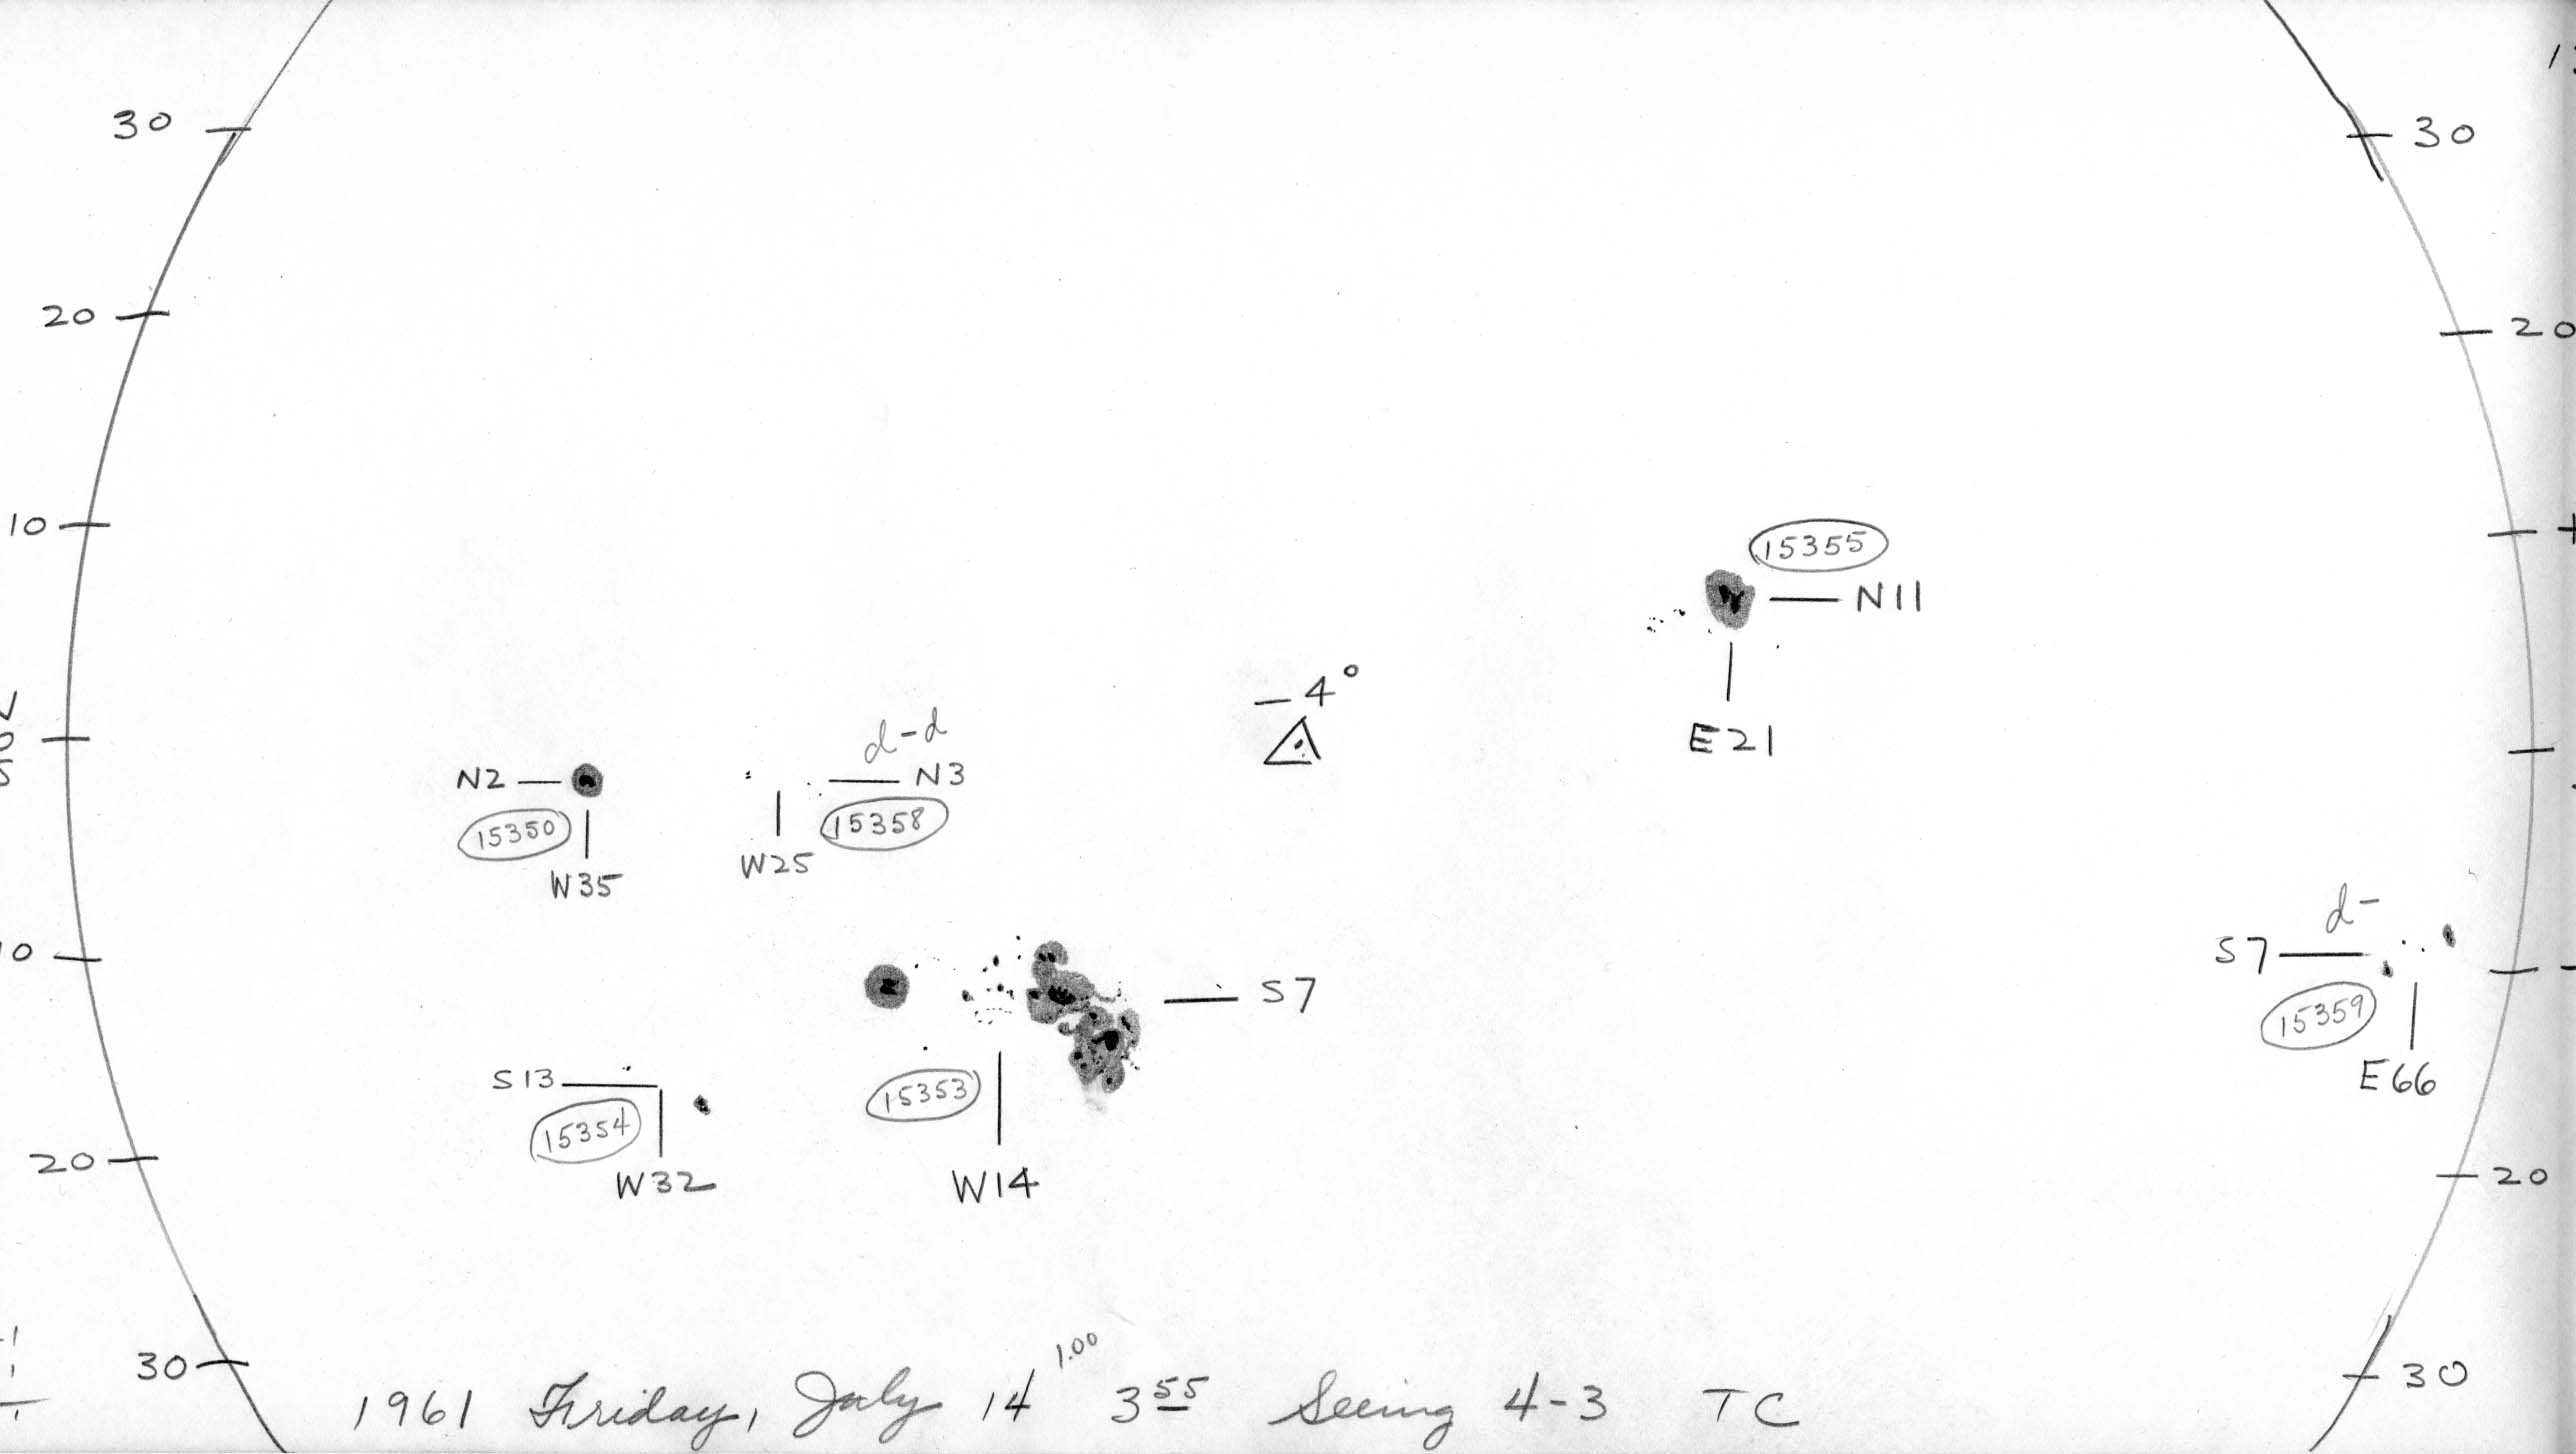 30
30
20
20
10
15355
N11
-4°
E21
d-d
N2
N3
15350
15358
W25
W35
d-
S7
S7
15359
E66
S13
15353
15354
W32
W14
20
20
30
30
1961 Friday, July 14 1.00 3 55 Seeing 4-3 TC